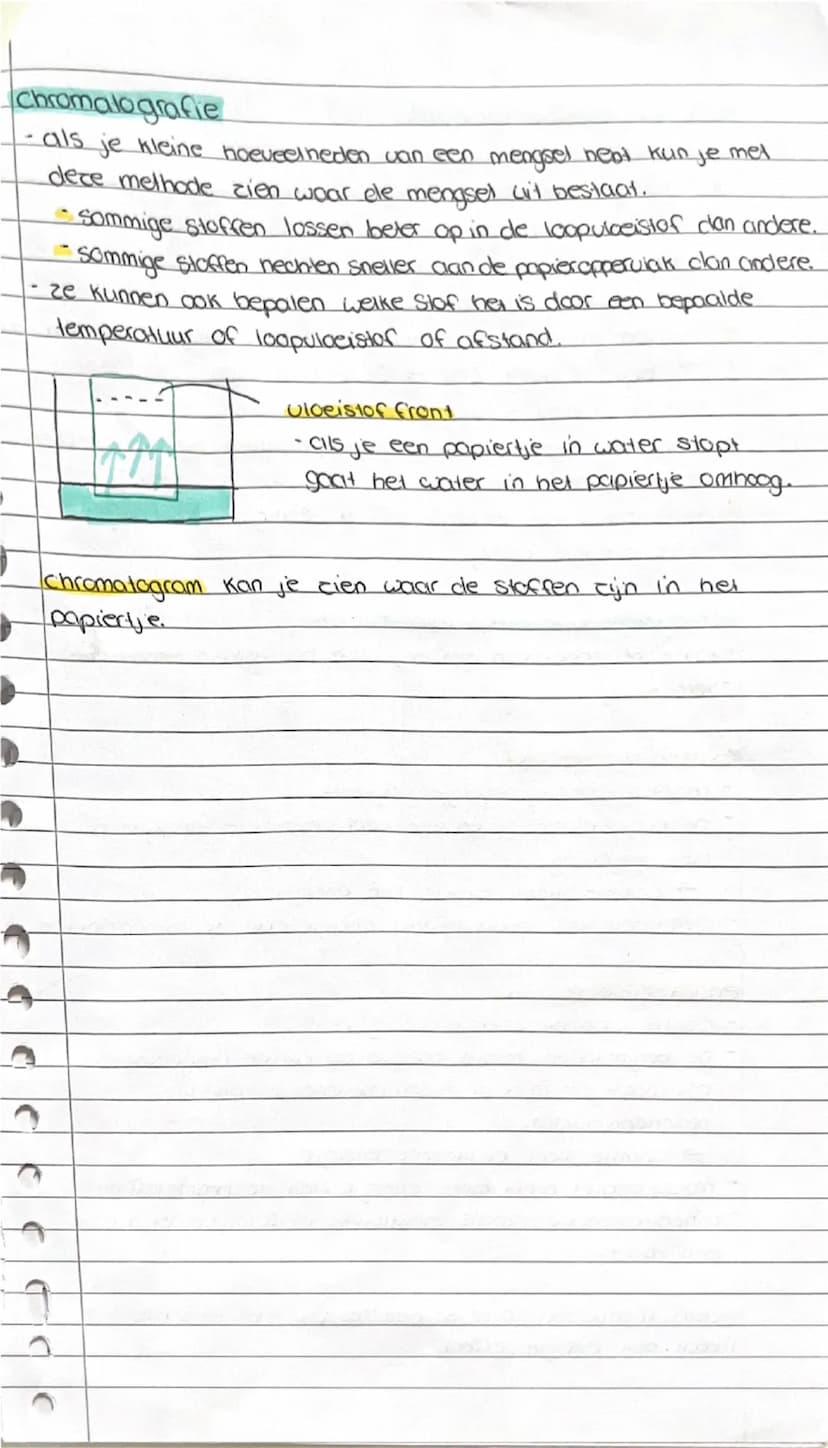 Chromatografie
- als je kleine hoeveelheden van een mengsel hebt kun je met
deze methode zien waar de mengsel uit bestaat.
- sommige stoffen lossen beter op in de loopvloeistof dan andere.
- sommige stoffen hechten sneller aan de papieroppervlak dan andere.
- ze kunnen ook bepalen welke stof het is door een bepaalde
temperatuur of loopvloeistof of afstand.
vloeistof front
- als je een papiertje in water stopt
gaat het water in het papiertje omhoog.
Chromatogram kan je zien waar de stoffen zijn in het
papiertje.